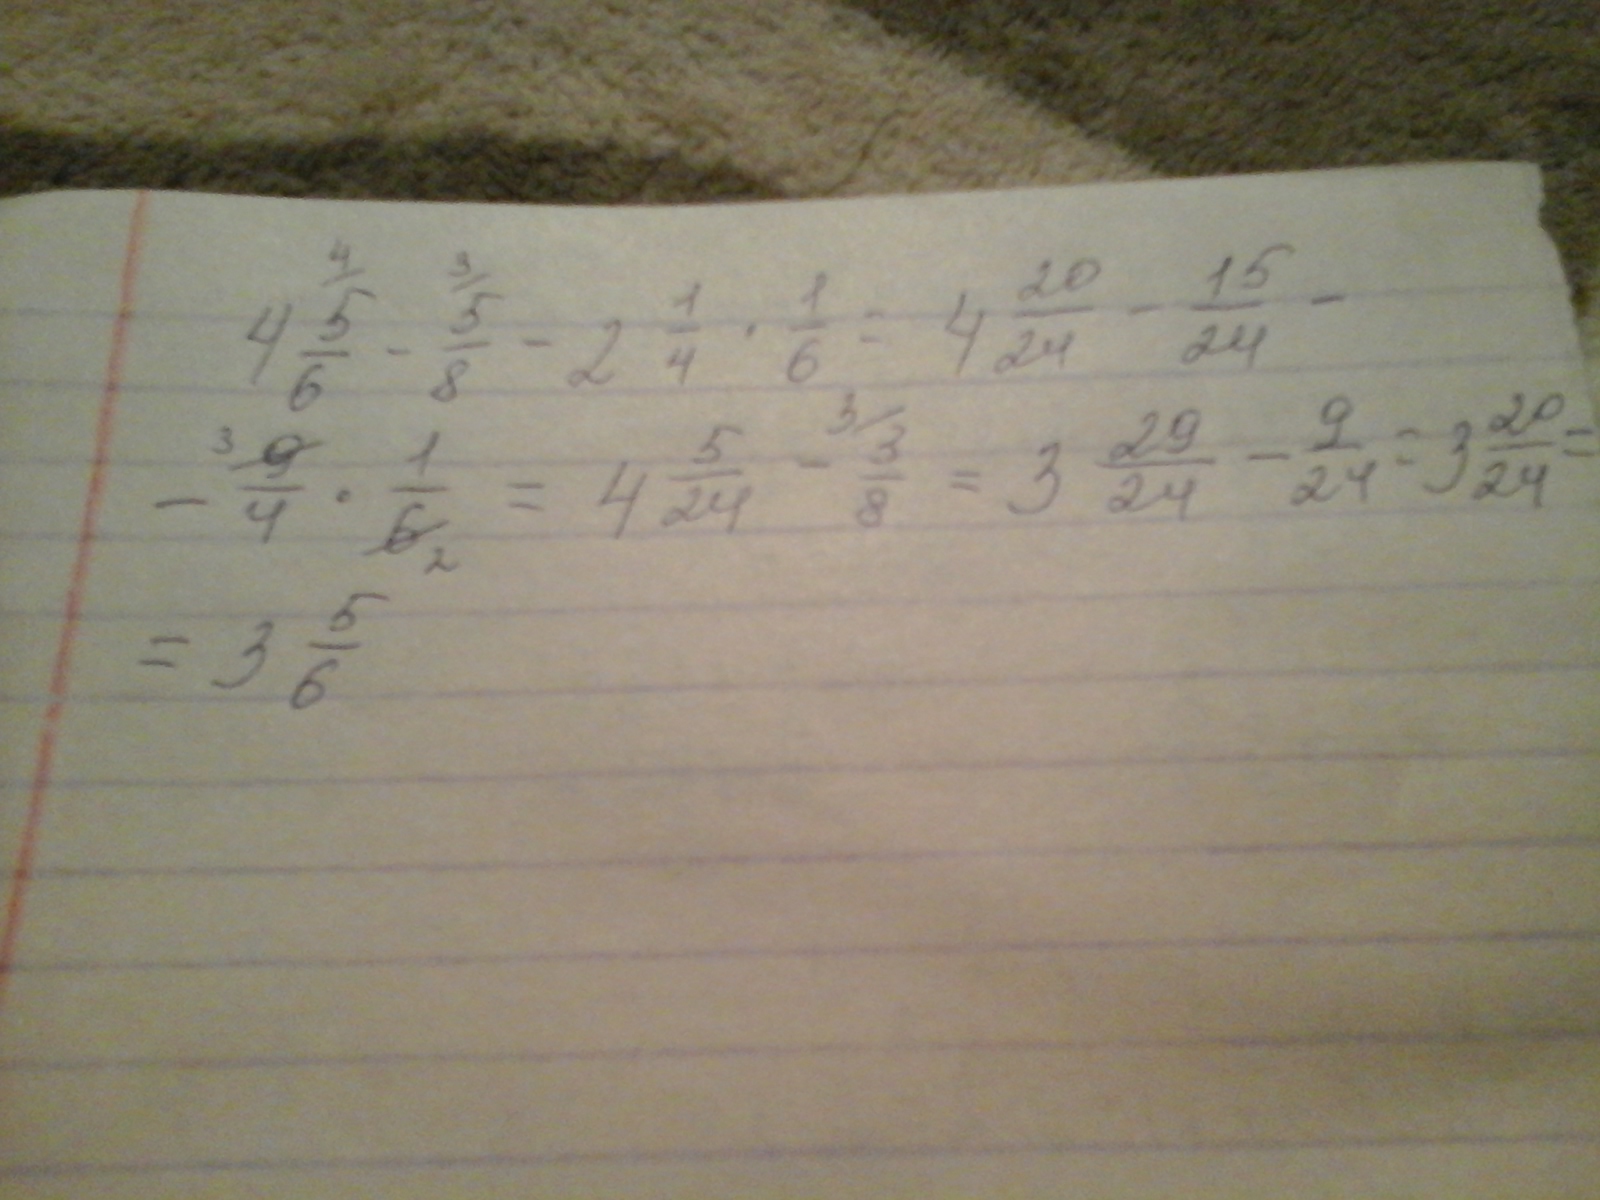 4 5/6 (4/) - 5/8 (3/) - 2 1/4 · 1/6 = 4 20/24 - 15/24 -
- 9/4 (3) · 1/6 (2) = 4 5/24 - 3/8 (3/) = 3 29/24 - 9/24 = 3 20/24 =
= 3 5/6